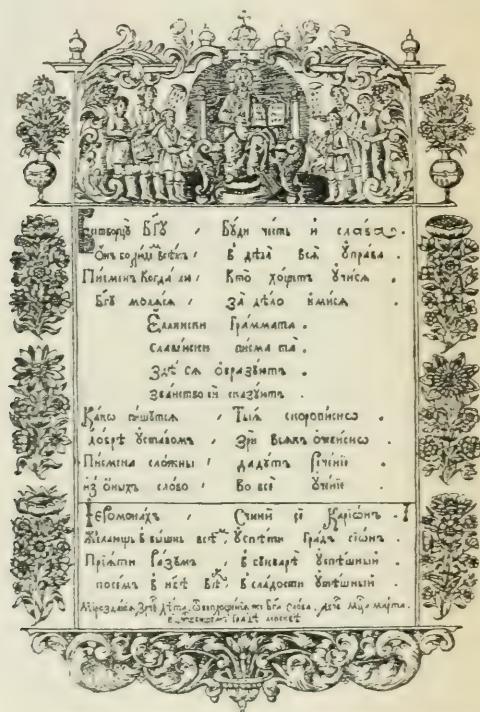 Всетворцу Бг҃у / Буди честь и слава .
Онъ во всѣхъ / в дѣла вся управа .
Писменъ когда ли / Кто хощетъ учися .
Бг҃у моляся / За дѣло имися .
Еллински Граммата .
славянски писма та .
Здѣ ся ѡбразуютъ .
Званство си сказуютъ .
Какѡ пишутся / Тыя скорописнѡ
добрѣ уставомъ / Зри всякъ ѻчевиснѡ
Писмена сложны / дадутъ рѣченїе
из ѻных слово / Во все ученїе
Іеромонахъ / Счини сїе Карїѡнъ .
Желаяшь в вышнь всѣмъ успѣти Градъ сїѡнъ .
Прїяти Разумъ / в букварѣ успѣшный .
посемъ в нб҃ѣ / в сладости утѣшный .
лѣта . Бг҃а слова . мц҃а марта .
Градѣ москвѣ